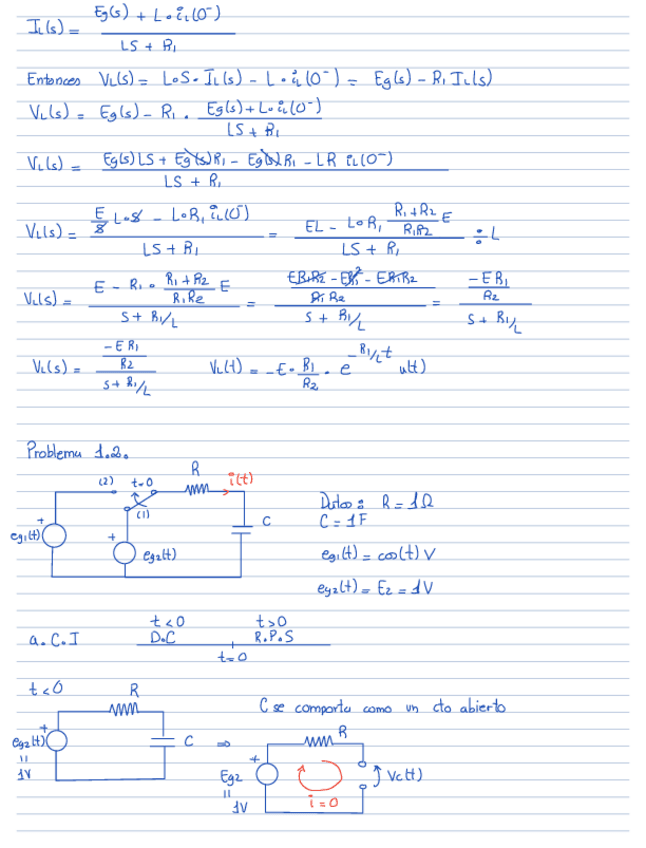 I_L(s) = (Eg(s) + L∘i_L(0⁻)) / (LS + R₁)
Entonces V_L(s) = L∘S∘I_L(s) - L∘i_L(0⁻) = Eg(s) - R₁ I_L(s)
V_L(s) = Eg(s) - R₁ · (Eg(s) + L∘i_L(0⁻)) / (LS + R₁)
V_L(s) = (Eg(s) LS + Eg(s) R₁ - Eg(s) R₁ - LR i_L(0⁻)) / (LS + R₁)
V_L(s) = (E/s L∘s - L∘R₁ i_L(0⁻)) / (LS + R₁) = (EL - L∘R₁ (R₁+R₂)/(R₁R₂) E) / (LS + R₁) ÷ L
V_L(s) = (E - R₁ ∘ (R₁+R₂)/(R₁R₂) E) / (S + R₁/L) = ((ER₁R₂ - ER₁² - ER₁R₂)/(R₁R₂)) / (S + R₁/L) = (-ER₁/R₂) / (S + R₁/L)
V_L(s) = (-ER₁/R₂) / (S + R₁/L) V_L(t) = -E · R₁/R₂ · e^(-R₁/L t) u(t)
Problema 1.2.
(2) t=0 R i(t)
(1)
+ eg₁(t)
+ eg₂(t)
C
Datos: R = 1Ω
C = 1F
eg₁(t) = cos(t) V
eg₂(t) = E₂ = 1V
a. C.I
t<0 t>0
D.C R.P.S
t=0
t<0 R
C se comporta como un cto abierto
+ eg₂(t) C ⇒
=
1V
R
+ Eg₂
=
1V
i=0
Vc(t)